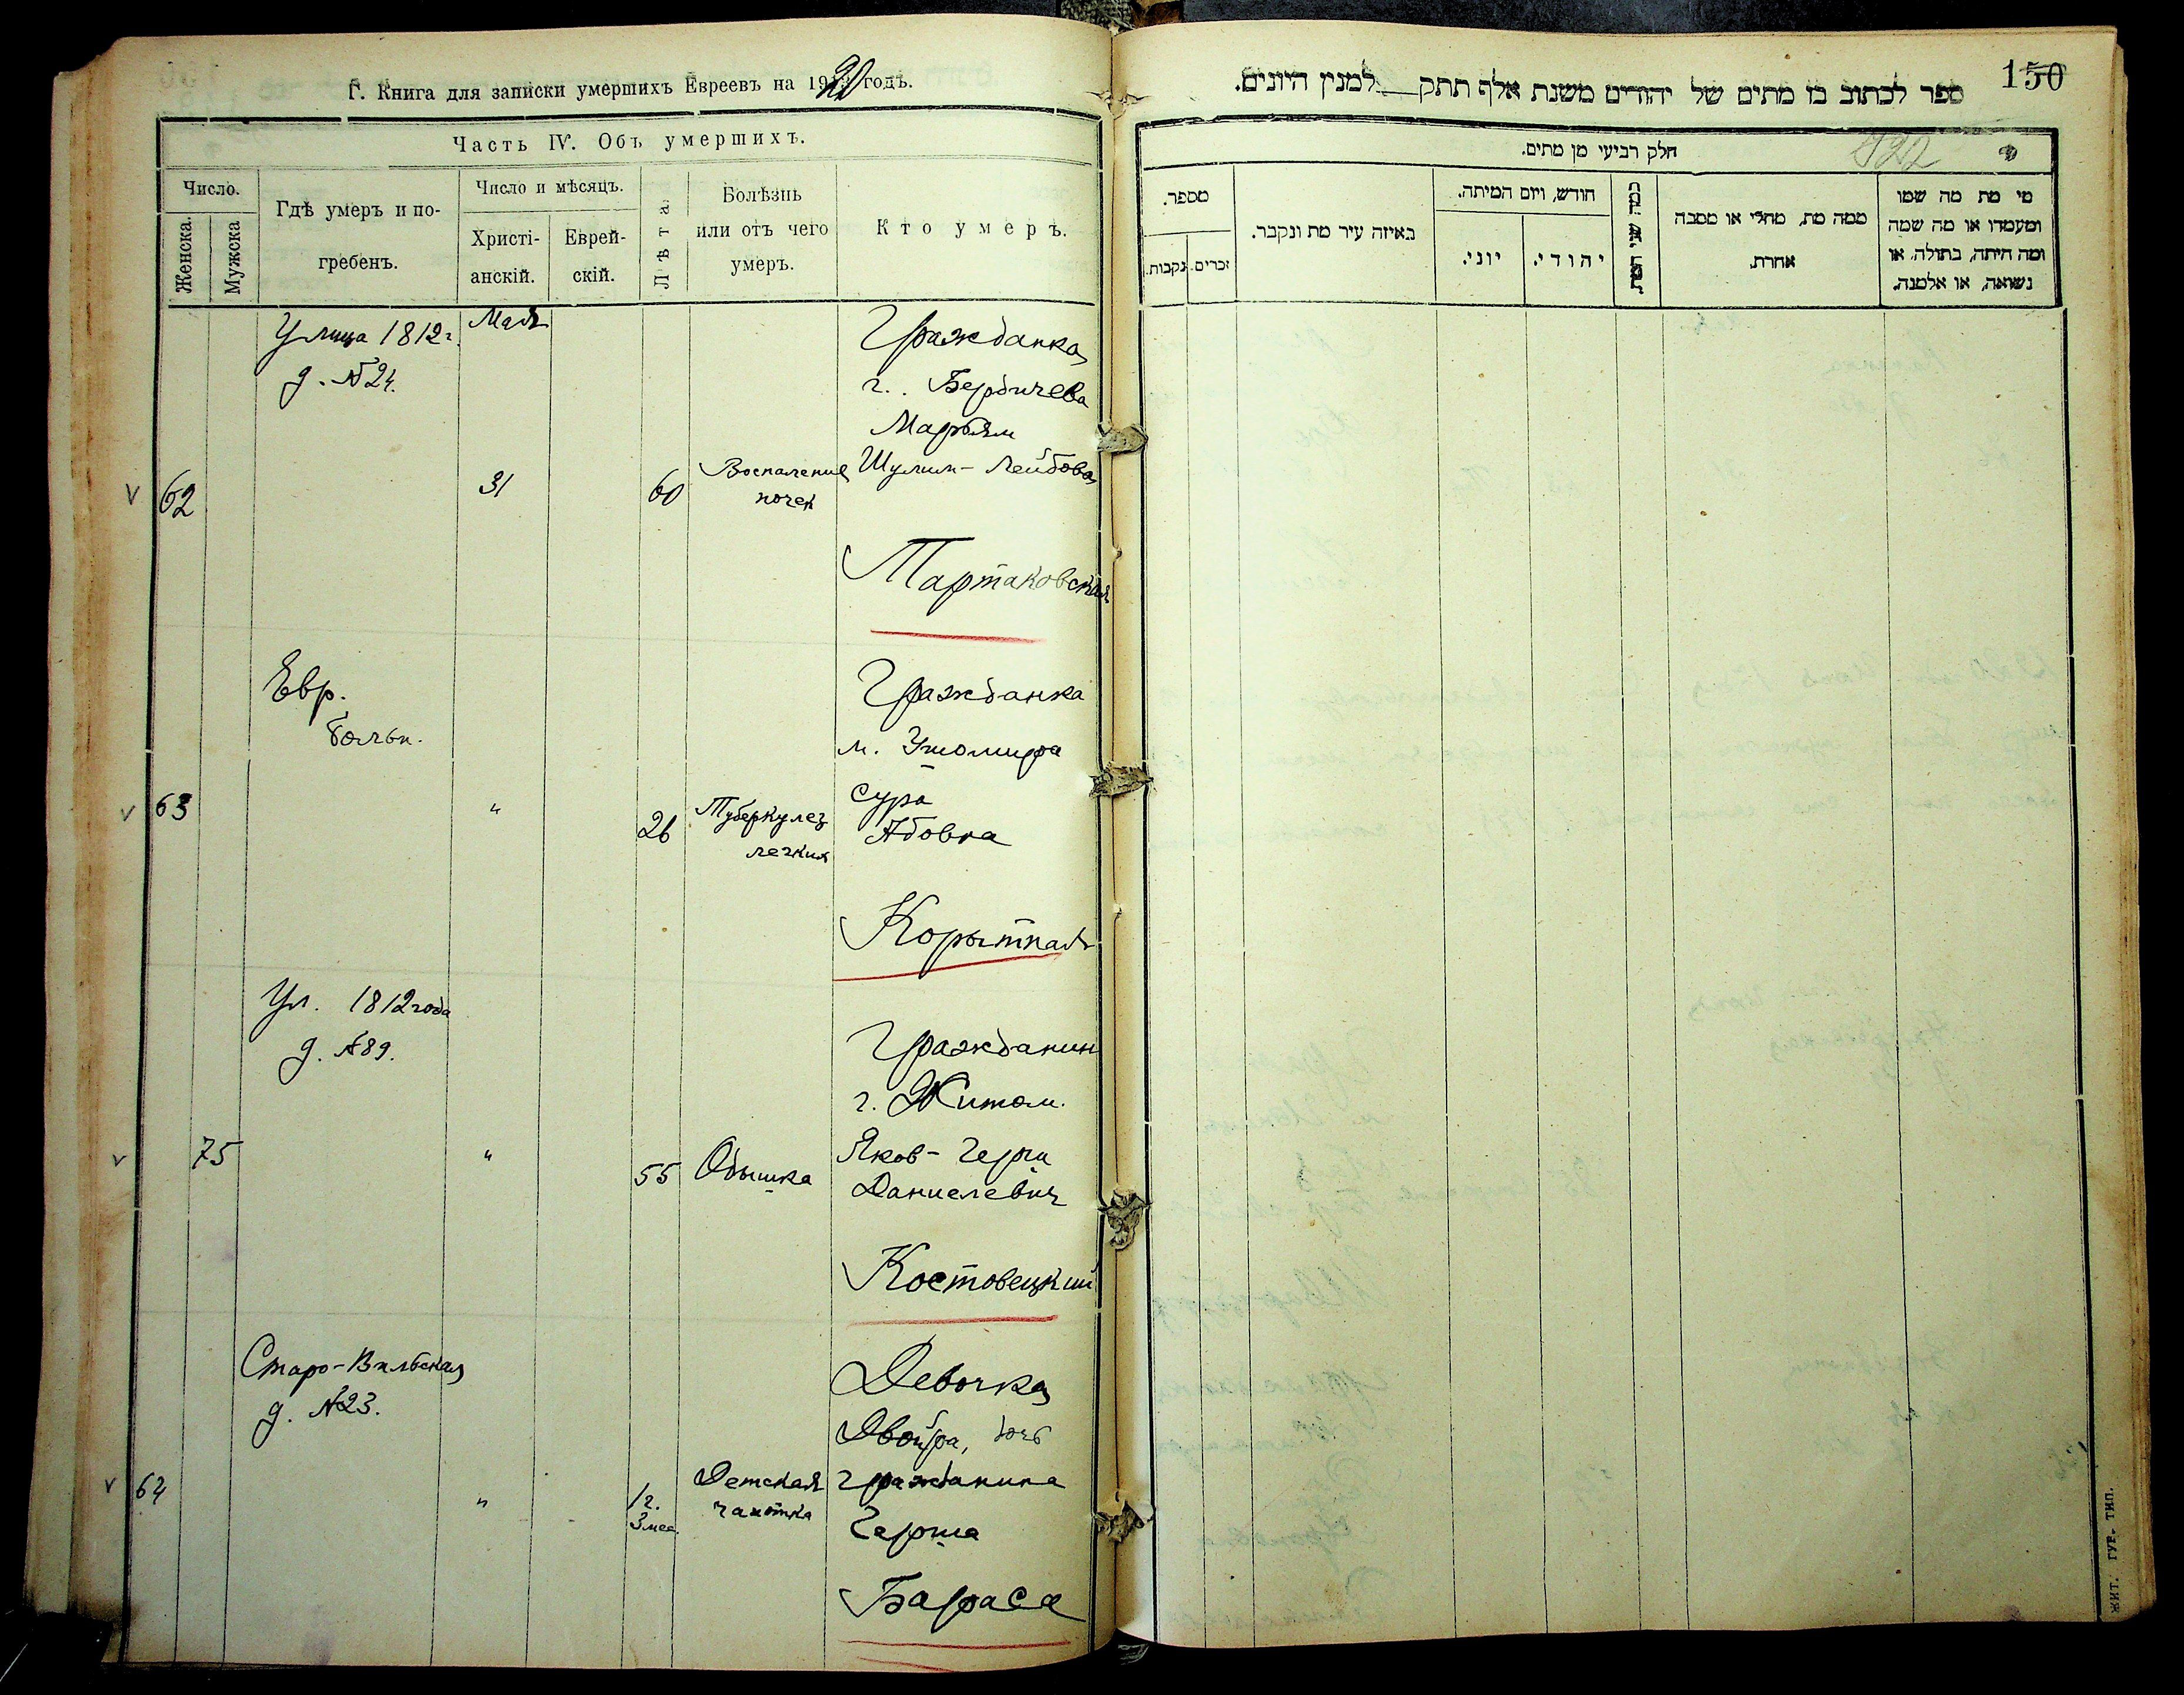 Г. Книга для записки умершихъ Евреевъ на 1920 годъ.
Часть IV. Объ умершихъ.
Число.
Женска.
Мужска
Гдѣ умеръ и по-
гребенъ.
Число и мѣсяцъ.
Христі-
анскій.
Еврей-
скій.
Лѣта.
Болѣзнь
или отъ чего
умеръ.
Кто умеръ.
Улица 1812 г.
д. № 24.
Мая
Гражданка
г. Бердичева
Марьям
62
31
60
Воспаление
почек
Шулим-Лейбова
Тартаковская
Евр.
больн.
Гражданка
м.
63
"
26
Туберкулез
легких
Сура
Абовна
Корытная
Ул. 1812 года
д. № 89.
Гражданин
г. Житом.
75
"
55
Одышка
Яков-Герш
Даниелевич
Костовецкий
Старо-Вильская
д. № 23.
Девочка
Двойра, дочь
64
"
1 г.
3 мес.
Детская
чахотка
гражданина
Герша
Бараса
150
ספר לכתוב בו מתים של יהודים משנת אלף תתק למנין היונים.
122
חלק רביעי מן מתים.
מספר.
נקבות.
זכרים.
באיזה עיר מת ונקבר.
חודש, ויום המיתה.
יוני.
יהודי.
ממה מת, מחלי או מסבה
אחרת.
מי מת מה שמו
ומעמדו או מה שמה
ומה היתה, בתולה, או
נשואה, או אלמנה.
ЖИТ. ГУБ. ТИП.